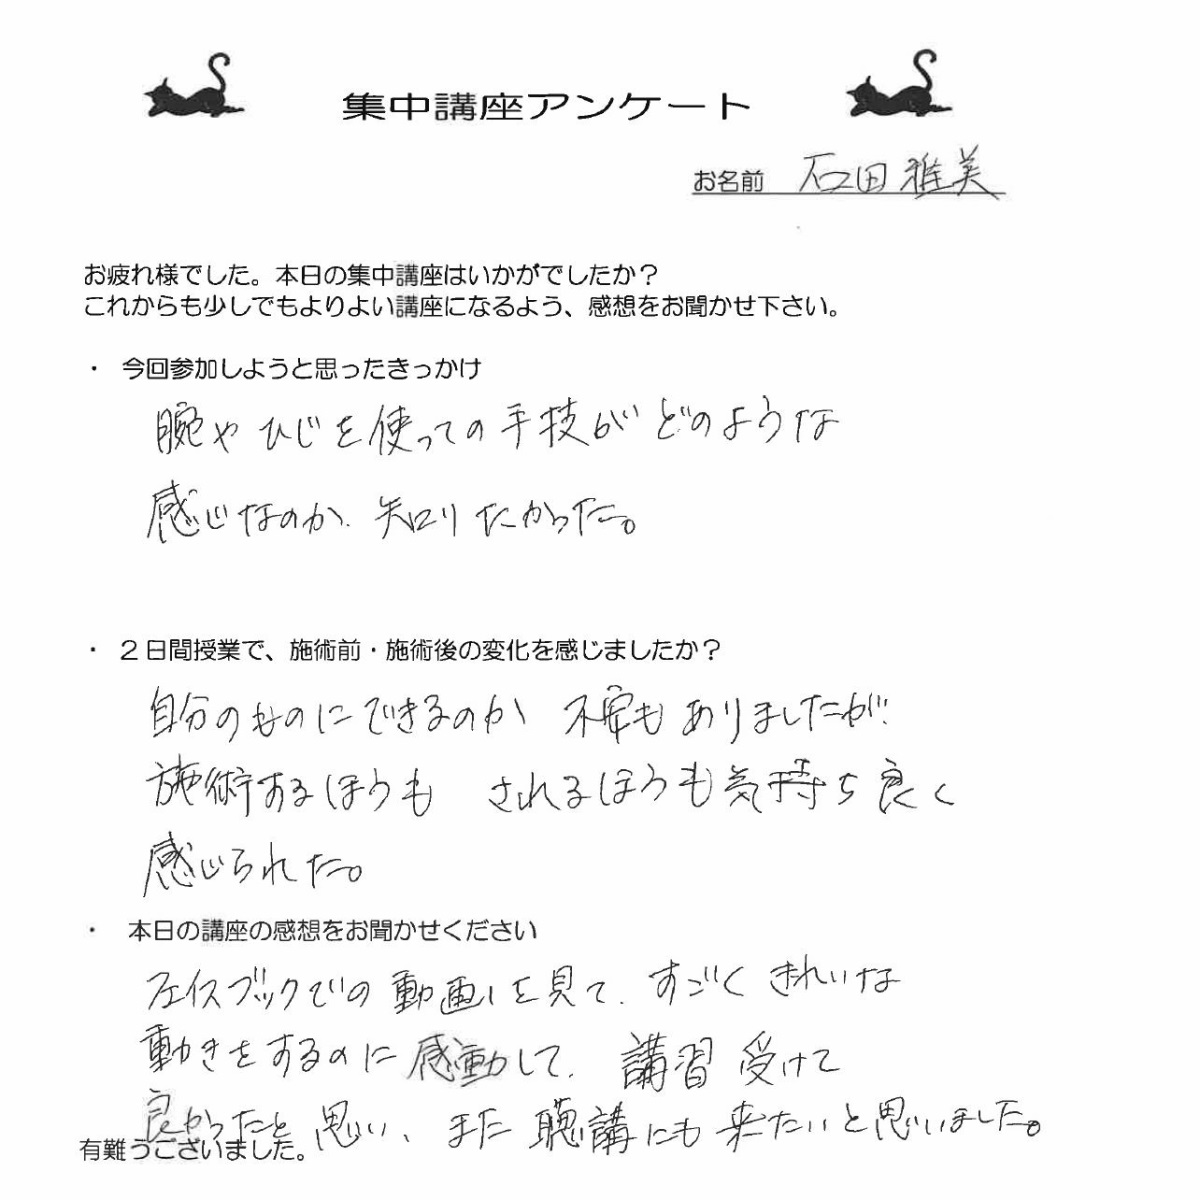 集中講座アンケート
お名前 石田雅美
お疲れ様でした。本日の集中講座はいかがでしたか？
これからも少しでもよりよい講座になるよう、感想をお聞かせ下さい。
・ 今回参加しようと思ったきっかけ
腕やひじを使っての手技がどのような
感じなのか、知りたかった。
・ 2日間授業で、施術前・施術後の変化を感じましたか？
自分のものにできるのか 不安もありましたが
施術するほうも されるほうも気持ち良く
感じられた。
・ 本日の講座の感想をお聞かせください
フェイスブックでの動画を見て、すごくきれいな
動きをするのに感動して、講習受けて
良かったと思い、また聴講にも来たいと思いました。
有難うございました。